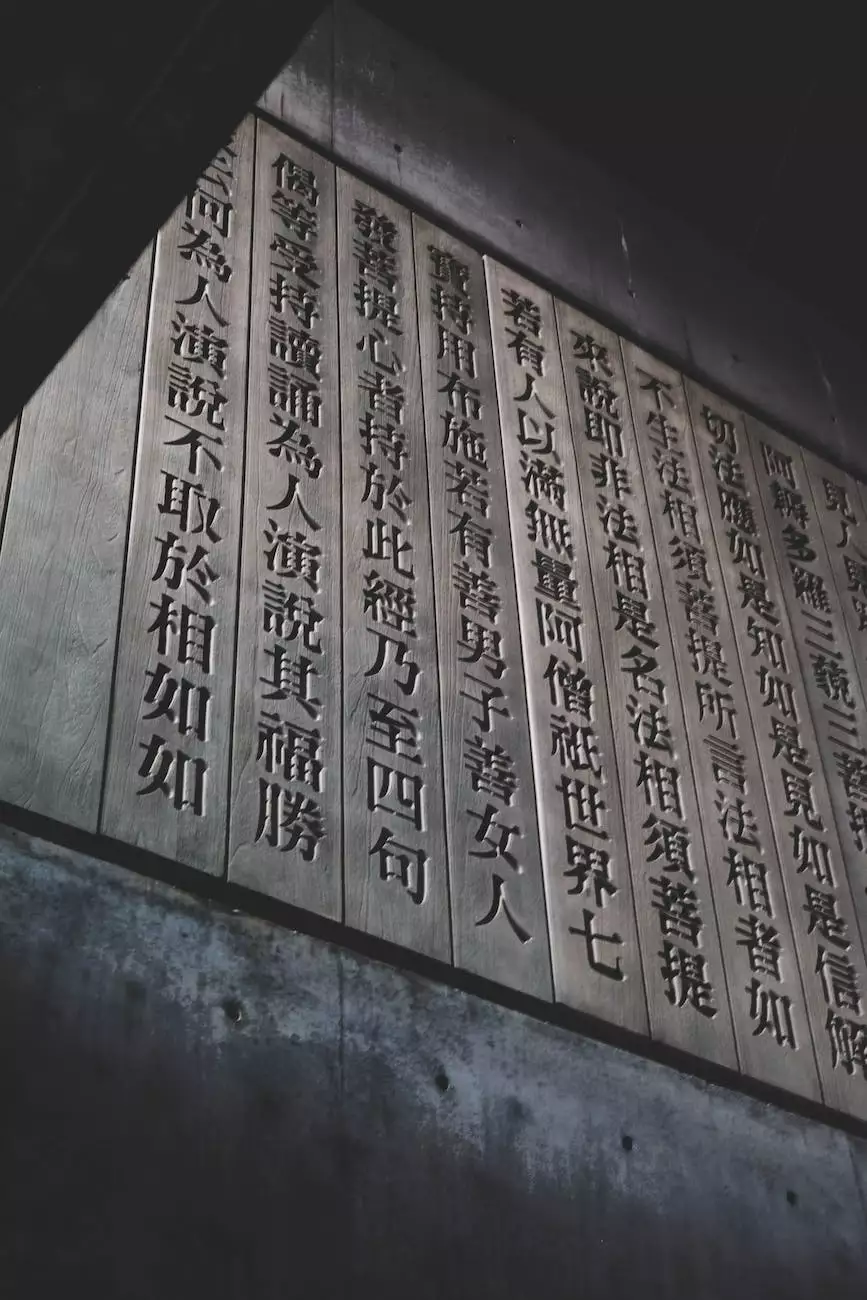 見人
阿耨多羅三藐三菩提
切法應如是知如是見如是信解
不生法相須菩提所言法相者如
來說即非法相是名法相須菩提
若有人以滿無量阿僧祇世界七
寶持用布施若有善男子善女人
發菩提心者持於此經乃至四句
偈等受持讀誦為人演說其福勝
云何為人演說不取於相如如